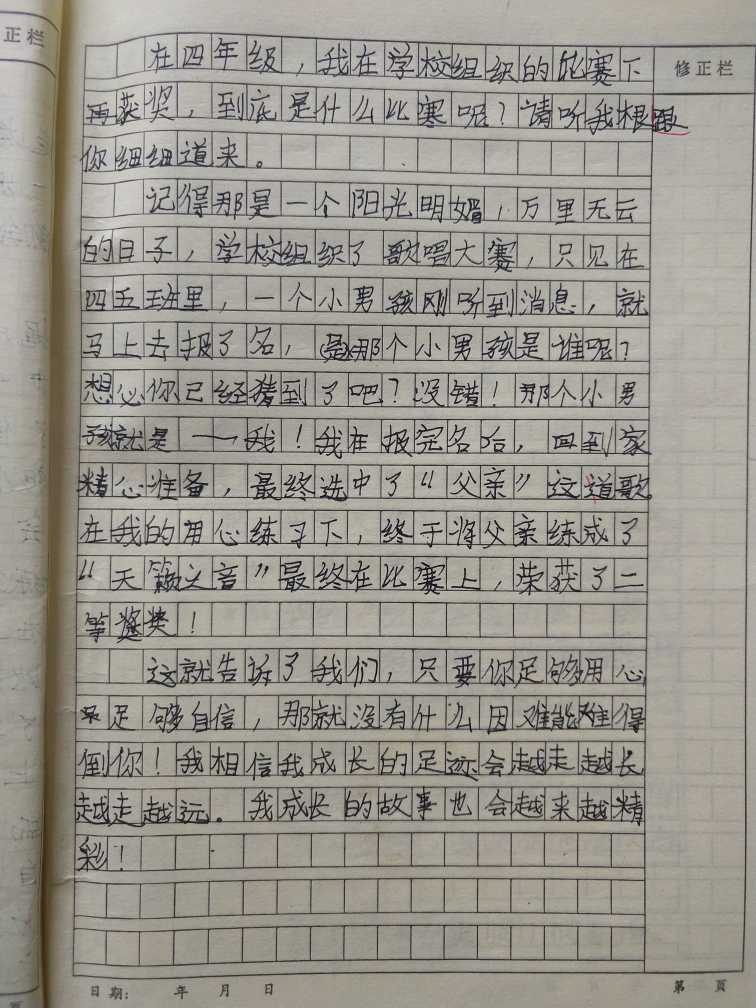 正栏
修正栏
在四年级，我在学校组织的比赛下
再获奖，到底是什么比赛呢？请听我根跟
你细细道来。
记得那是一个阳光明媚，万里无云
的日子，学校组织了歌唱大赛，只见在
四五班里，一个小男孩刚听到消息，就
马上去报了名，那个小男孩是谁呢？
想必你已经猜到了吧？没错！那个小男
孩就是——我！我在报完名后，回到家
精心准备，最终选中了“父亲”这道歌
在我的用心练习下，终于将父亲练成了
“天籁之音”最终在比赛上，荣获了二
等奖！
这就告诉了我们，只要你足够用心
足够自信，那就没有什么因难能难得
倒你！我相信我成长的足迹会越走越长
越走越远。我成长的故事也会越来越精
彩！
日期： 年 月 日
第 页